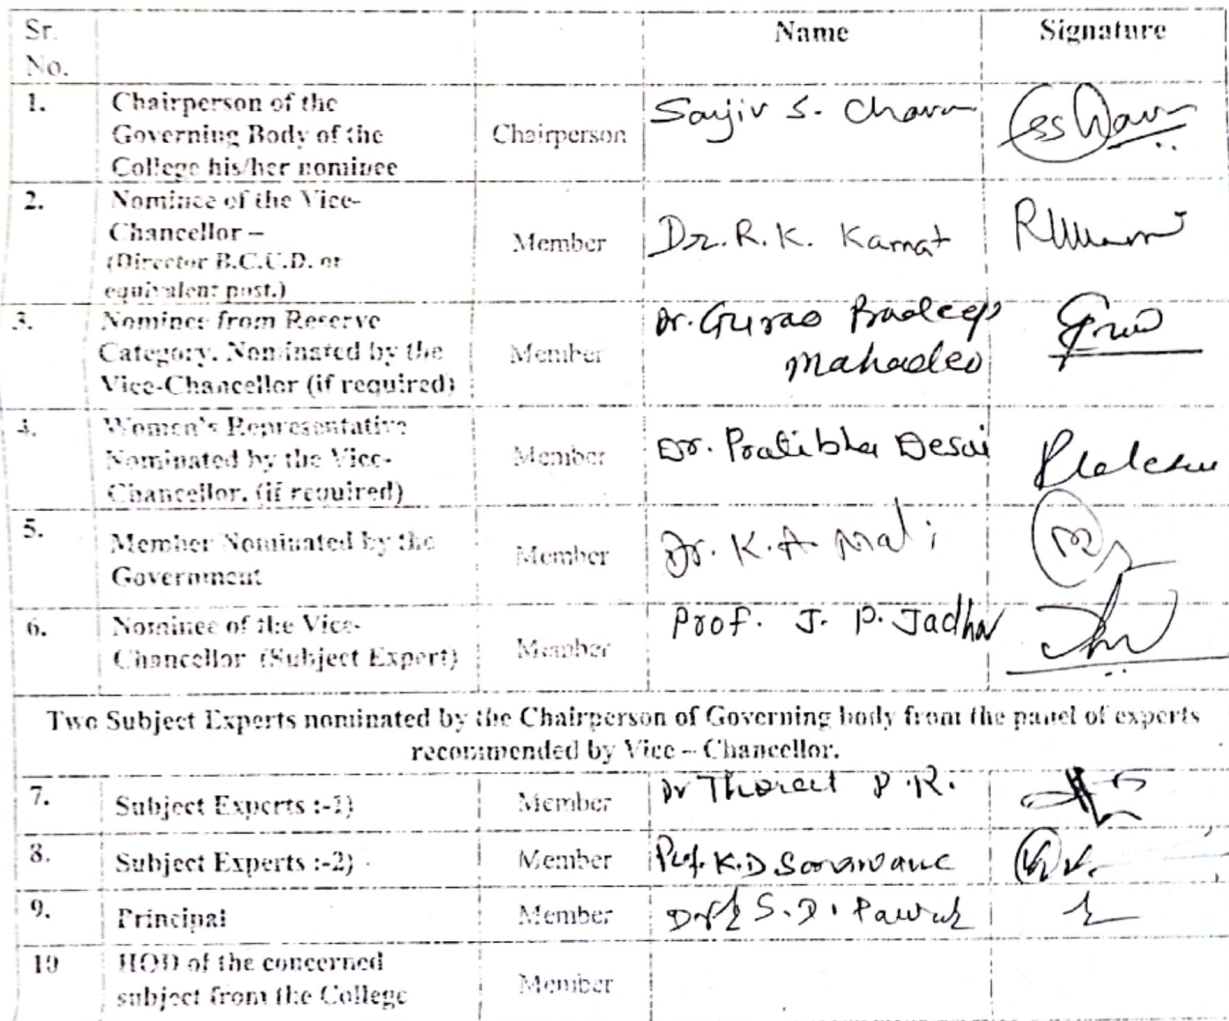 Sr. No.
Name
Signature
1.
Chairperson of the
Governing Body of the
College his/her nominee
Chairperson
Sanjiv S. Chavan
2.
Nominee of the Vice-
Chancellor –
(Director B.C.U.D. or
equivalent post.)
Member
Dr. R.K. Kamat
3.
Nominee from Reserve
Category. Nominated by the
Vice-Chancellor (if required)
Member
Dr. Gurao Pradeep
Mahadeo
4.
Women's Representative
Nominated by the Vice-
Chancellor. (if required)
Member
Dr. Pratibha Desai
5.
Member Nominated by the
Government
Member
Dr. K.A. Mali
6.
Nominee of the Vice-
Chancellor (Subject Expert)
Member
Prof. J. P. Jadhav
Two Subject Experts nominated by the Chairperson of Governing body from the panel of experts
recommended by Vice – Chancellor.
7.
Subject Experts :-1)
Member
Dr Thorat P.R.
8.
Subject Experts :-2)
Member
Prof. K.D Sonawane
9.
Principal
Member
S.D. Pawar
10
HOD of the concerned
subject from the College
Member